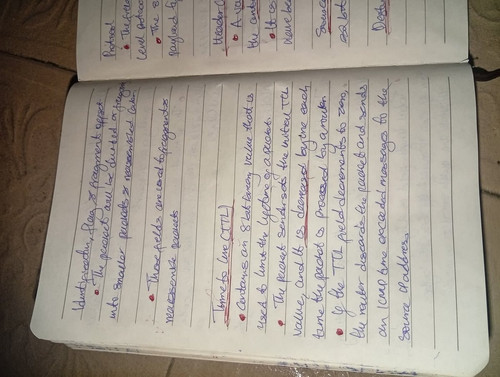 Protocol
• The
level protocol
• The 8
payload
Header C
• A va
the
• It co
Source
32 bit
Identification, flag & fragment offset
• The packet will be divided or
into smaller packets & reassembled later
• These fields are used to fragments
reassemble packets
Time to live (TTL)
• Contains an 8 bit binary value that is
used to limit the lifetime of a packet
• The packet sender sets the initial TTL
value, and it is decreased by one each
time the packet is processed by a router
• If the TTL field decrements to zero,
the router discards the packet and sends
an ICMP time exceeded message to the
source IP address.